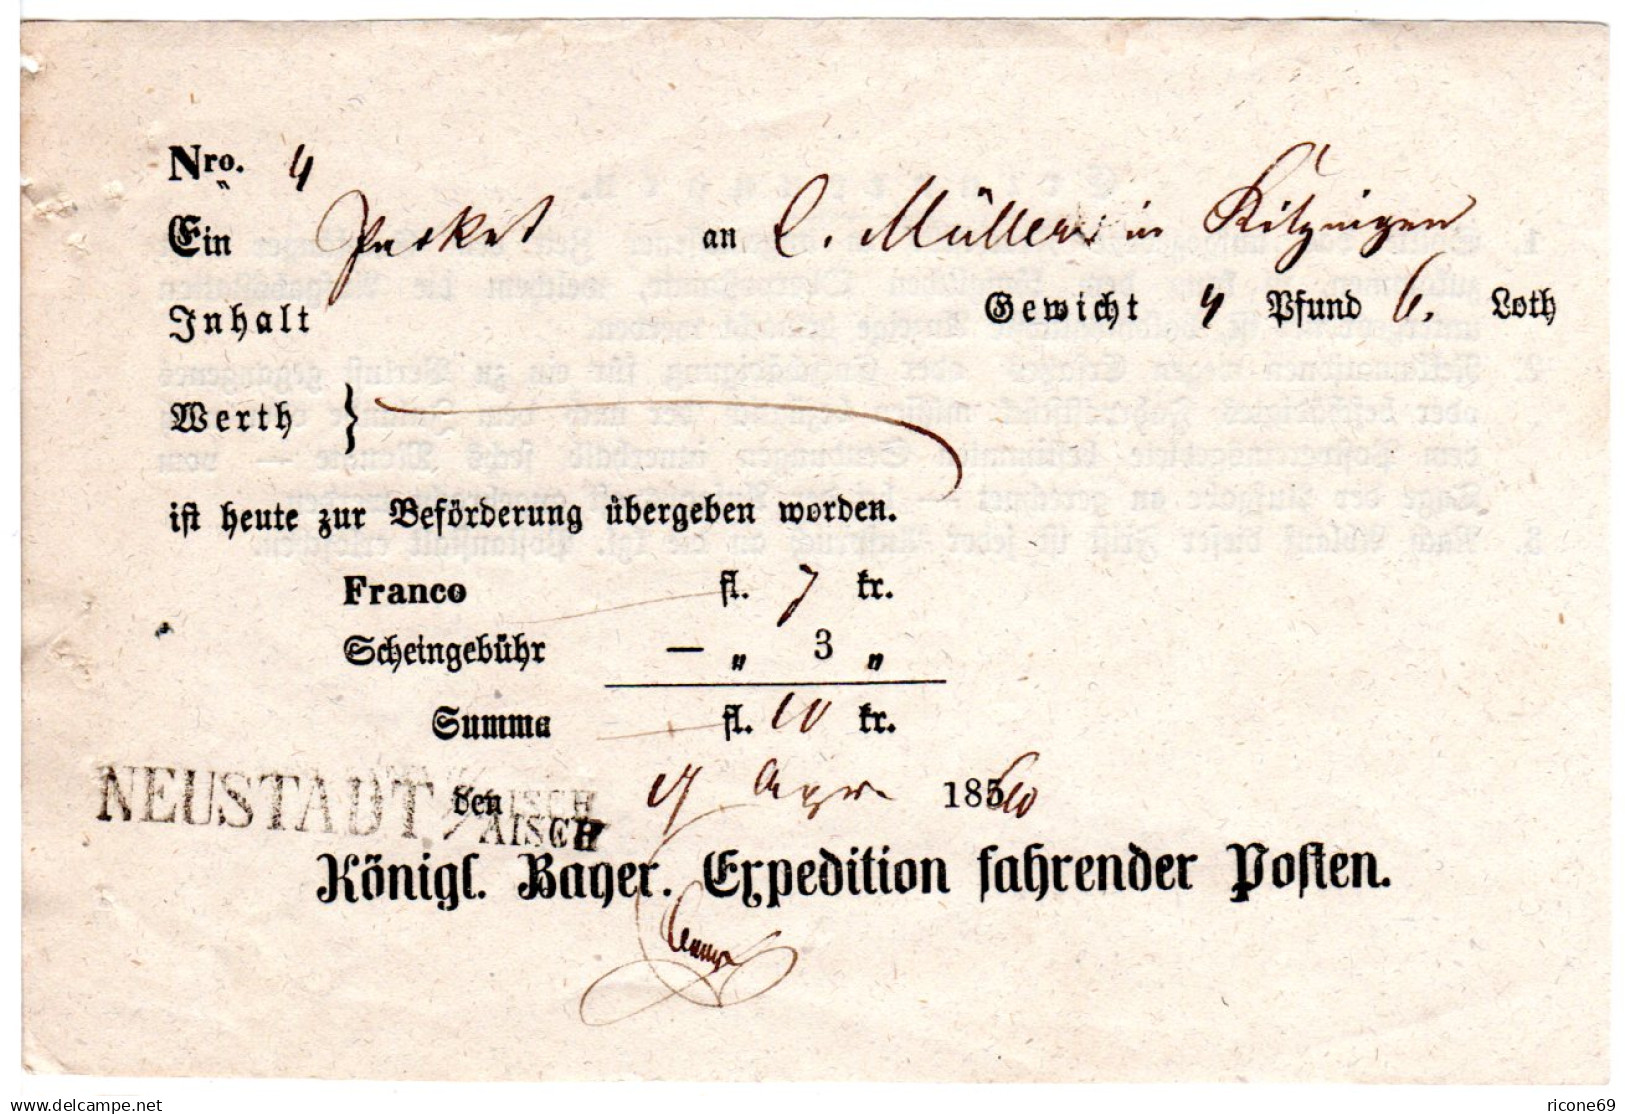 Nro. 4
Ein Packet an C. Müller in Kitzingen
Inhalt Gewicht 4 Pfund 6. Loth
Werth }
ist heute zur Beförderung übergeben worden.
Franco — fl. 7 kr.
Scheingebühr — „ 3 „
Summa — fl. 10 kr.
NEUSTADT A/ AISCH den 185
Königl. Bayer. Expedition fahrender Posten.
delcampe.net
ricone69